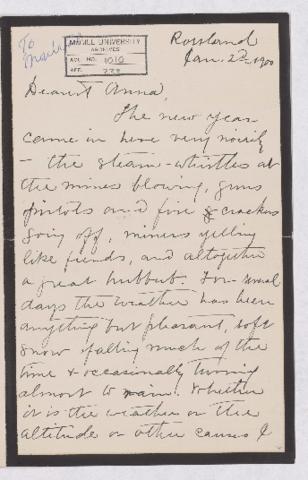 To
McGILL UNIVERSITY
ARCHIVES
ACC. NO. 1010
REF.
Rossland
Jan. 2d 1900
Dearest Anna,
The new year
came in here very noisily
- the steam-whistles at
the mines blowing, guns
pistols and fire crackers
going off, miners yelling
like fiends, and altogether
a great hubbub. For several
days the weather has been
anything but pleasant, soft
snow falling much of the
time & occasionally turning
almost to rain. Whether
it is the weather or the
altitude or other causes I